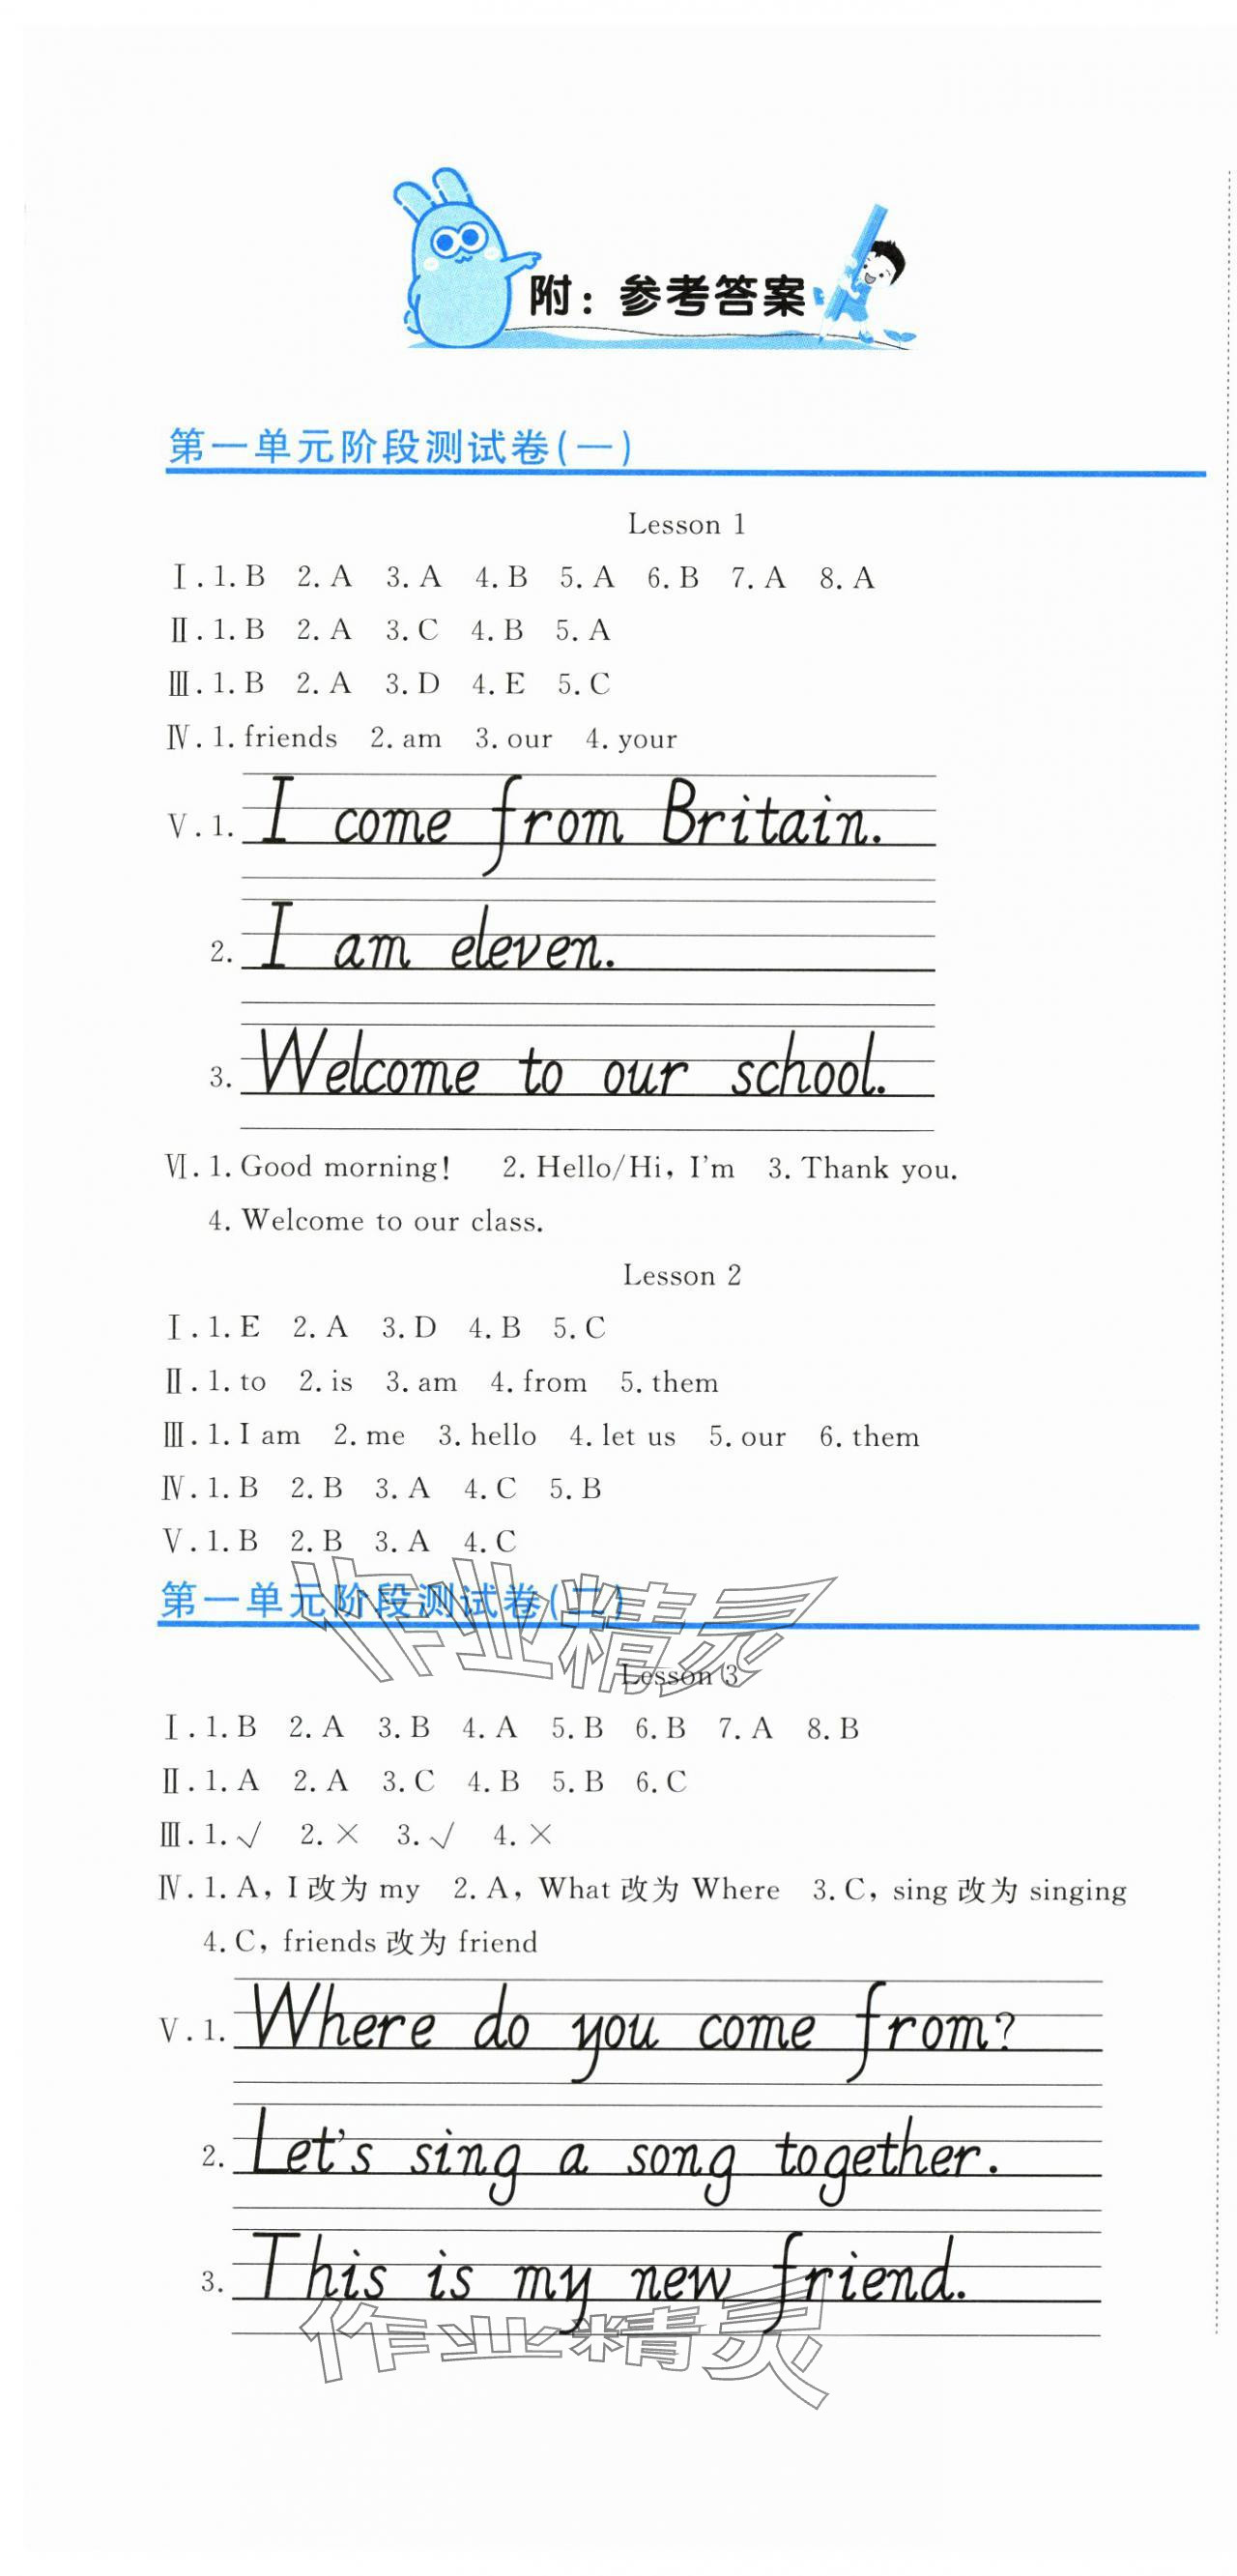 附：参考答案
第一单元阶段测试卷(一)
Lesson 1
Ⅰ.1.B 2.A 3.A 4.B 5.A 6.B 7.A 8.A
Ⅱ.1.B 2.A 3.C 4.B 5.A
Ⅲ.1.B 2.A 3.D 4.E 5.C
Ⅳ.1.friends 2.am 3.our 4.your
Ⅴ.1. I come from Britain.
2. I am eleven.
3. Welcome to our school.
Ⅵ.1.Good morning! 2.Hello/Hi, I'm 3.Thank you.
4.Welcome to our class.
Lesson 2
Ⅰ.1.E 2.A 3.D 4.B 5.C
Ⅱ.1.to 2.is 3.am 4.from 5.them
Ⅲ.1.I am 2.me 3.hello 4.let us 5.our 6.them
Ⅳ.1.B 2.B 3.A 4.C 5.B
Ⅴ.1.B 2.B 3.A 4.C
第一单元阶段测试卷(二)
作业精灵
Lesson 3
Ⅰ.1.B 2.A 3.B 4.A 5.B 6.B 7.A 8.B
Ⅱ.1.A 2.A 3.C 4.B 5.B 6.C
Ⅲ.1.√ 2.× 3.√ 4.×
Ⅳ.1.A, I改为my 2.A, What改为Where 3.C, sing改为singing
4.C, friends改为friend
Ⅴ.1. Where do you come from?
2. Let's sing a song together.
3. This is my new friend.
作业精灵